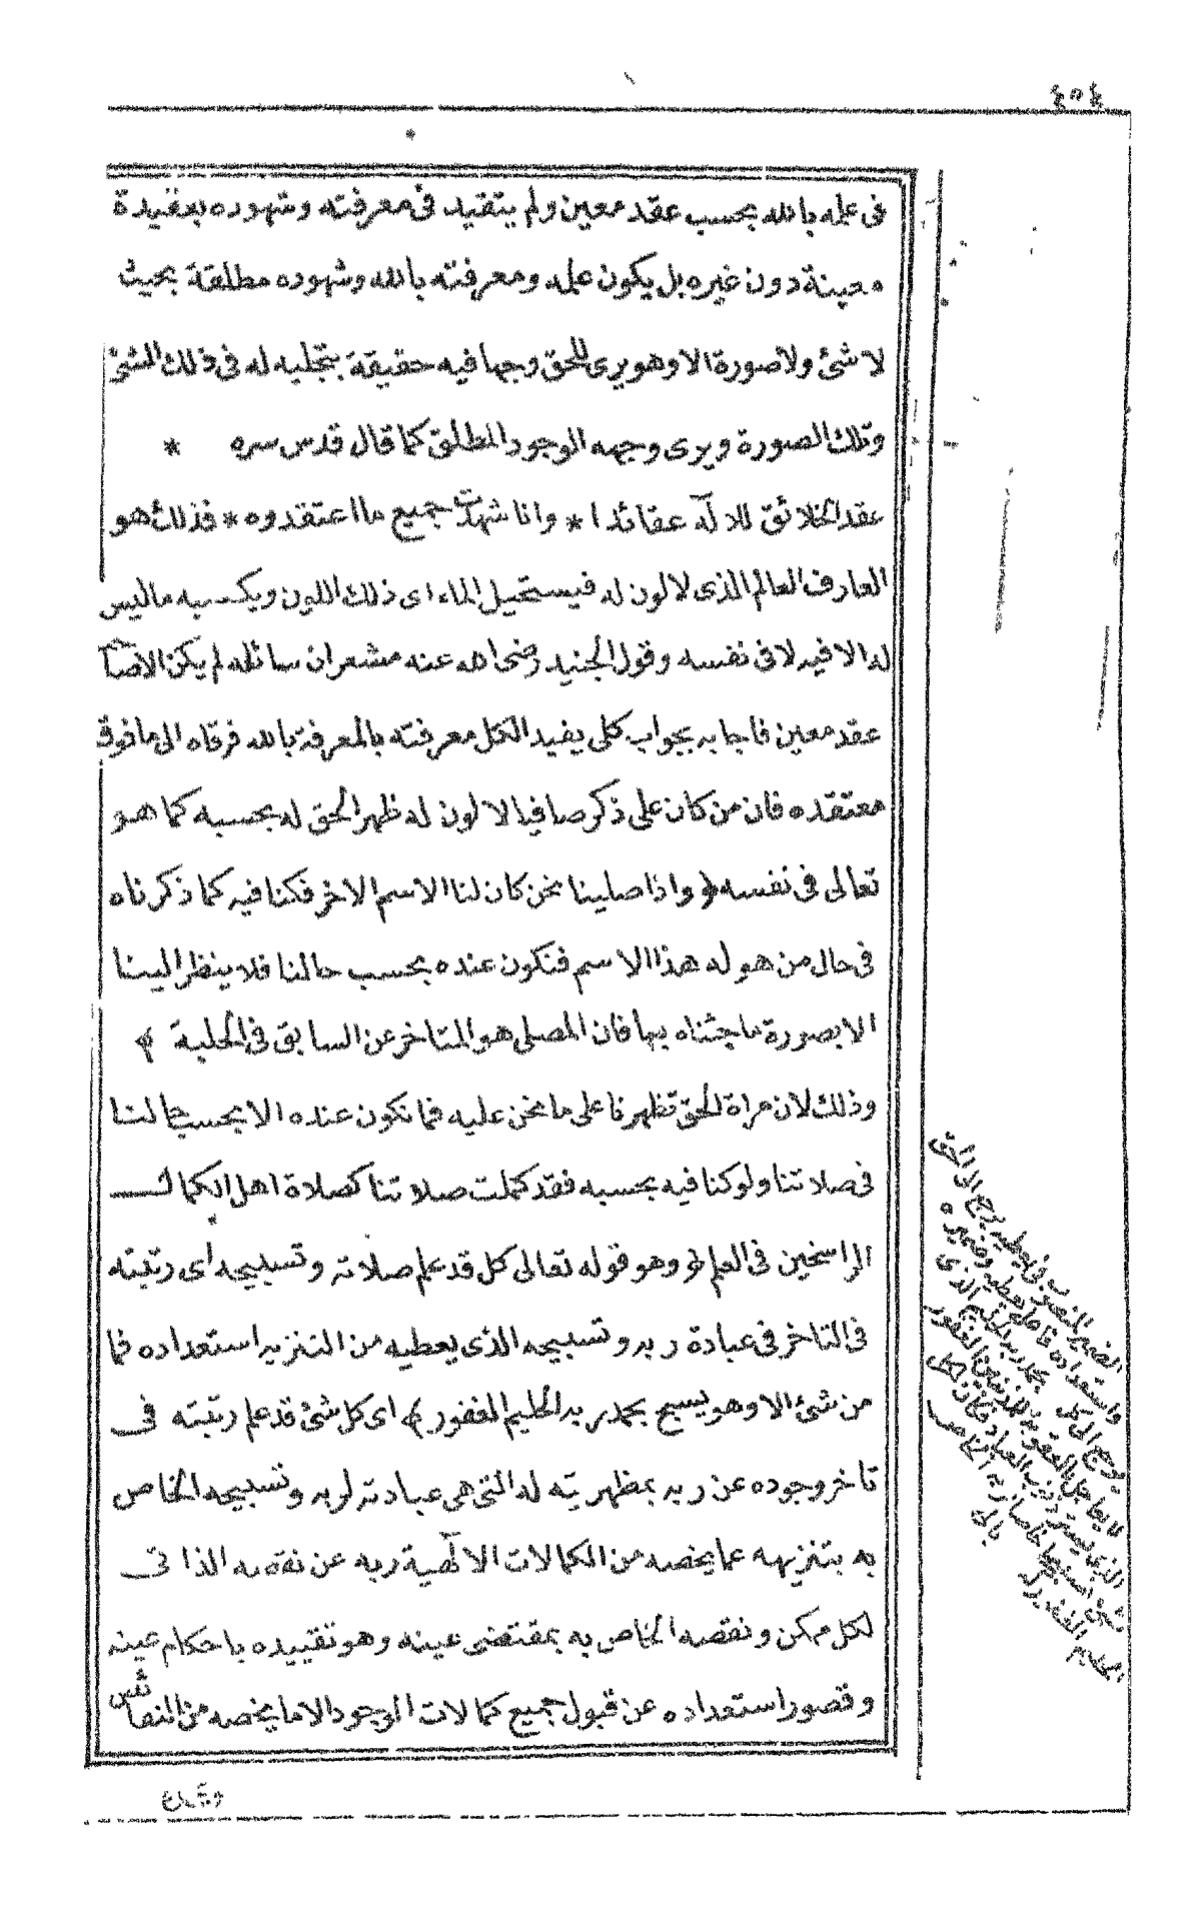 ٤٥٤
فى علمه بالله بحسب عقد معين ولم يتقيد فى معرفته وشهوده بعقيدة
معينة دون غيره بل يكون علمه ومعرفته بالله وشهوده مطلقة بحيث
لا شئ ولا صورة الا وهو يرى للحق وجها فيه حقيقة بتجليه له فى ذلك الشئ
وتلك الصورة ويرى وجهه الوجود المطلق كما قال قدس سره *
عقد الخلائق للاله عقائدا * وانا شهدت جميع ما اعتقدوه * فذلك هو
العارف العالم الذى لا لون له فيستحيل الماء اى ذلك اللون ويكسبه ما ليس
له الا فيه لا فى نفسه وقول الجنيد رضى الله عنه مشعر ان سائله لم يكن الا صاحب
عقد معين فاجابه بجواب كلى يفيد الكل معرفته بالمعرفة بالله فرقاه الى ما فوق
معتقده فان من كان على ذكر صافيا لا لون له ظهر الحق له بحسبه كما هو
تعالى فى نفسه ﴿ واذا صلينا نحن كان لنا الاسم الاخر فكنا فيه كما ذكرناه
فى حال من هو له هذا الاسم فنكون عنده بحسب حالنا فلا ينظر الينا
الا بصورة ما جئناه بها فان المصلى هو المتاخر عن السابق فى الحلبة ﴾
وذلك لان مراة الحق تظهرنا على ما نحن عليه فما نكون عنده الا بحسب حالنا
فى صلاتنا ولو كنا فيه بحسبه فقد كملت صلاتنا كصلاة اهل الكمال
الراسخين فى العلم ﴿ وهو قوله تعالى كل قد علم صلاته وتسبيحه اى رتبته
فى التاخر فى عبادة ربه وتسبيحه الذى يعطيه من التنزيه استعداده فما
من شئ الا وهو يسبح بحمد ربه الحليم الغفور ﴾ اى كل شئ قد علم رتبته فى
تاخر وجوده عن ربه بمظهريته له التى هى عبادته لربه وتسبيحه الخاص
به بتنزيهه عما يخصه من الكمالات الالهية ربه عن نقصه الذاتى
لكل ممكن ونقصه الخاص به بمقتضى عينه وهو تقييده باحكام عينه
وقصور استعداده عن قبول جميع كمالات الوجود الا ما يخصه من النقائص
الضمير المنصوب فى يعطيه يرجع الى الحق
واستعداده فاعل يعطيه وضميره
يرجع الى كل بحمد ربه الحليم الذى
لا يعاجل بالعقوبة للمذنبين الغفور
الذى يستر ذنوب العباد فكان لكل
شئ تسبيحا خاصا لربه الخاص
الحليم الغفور له